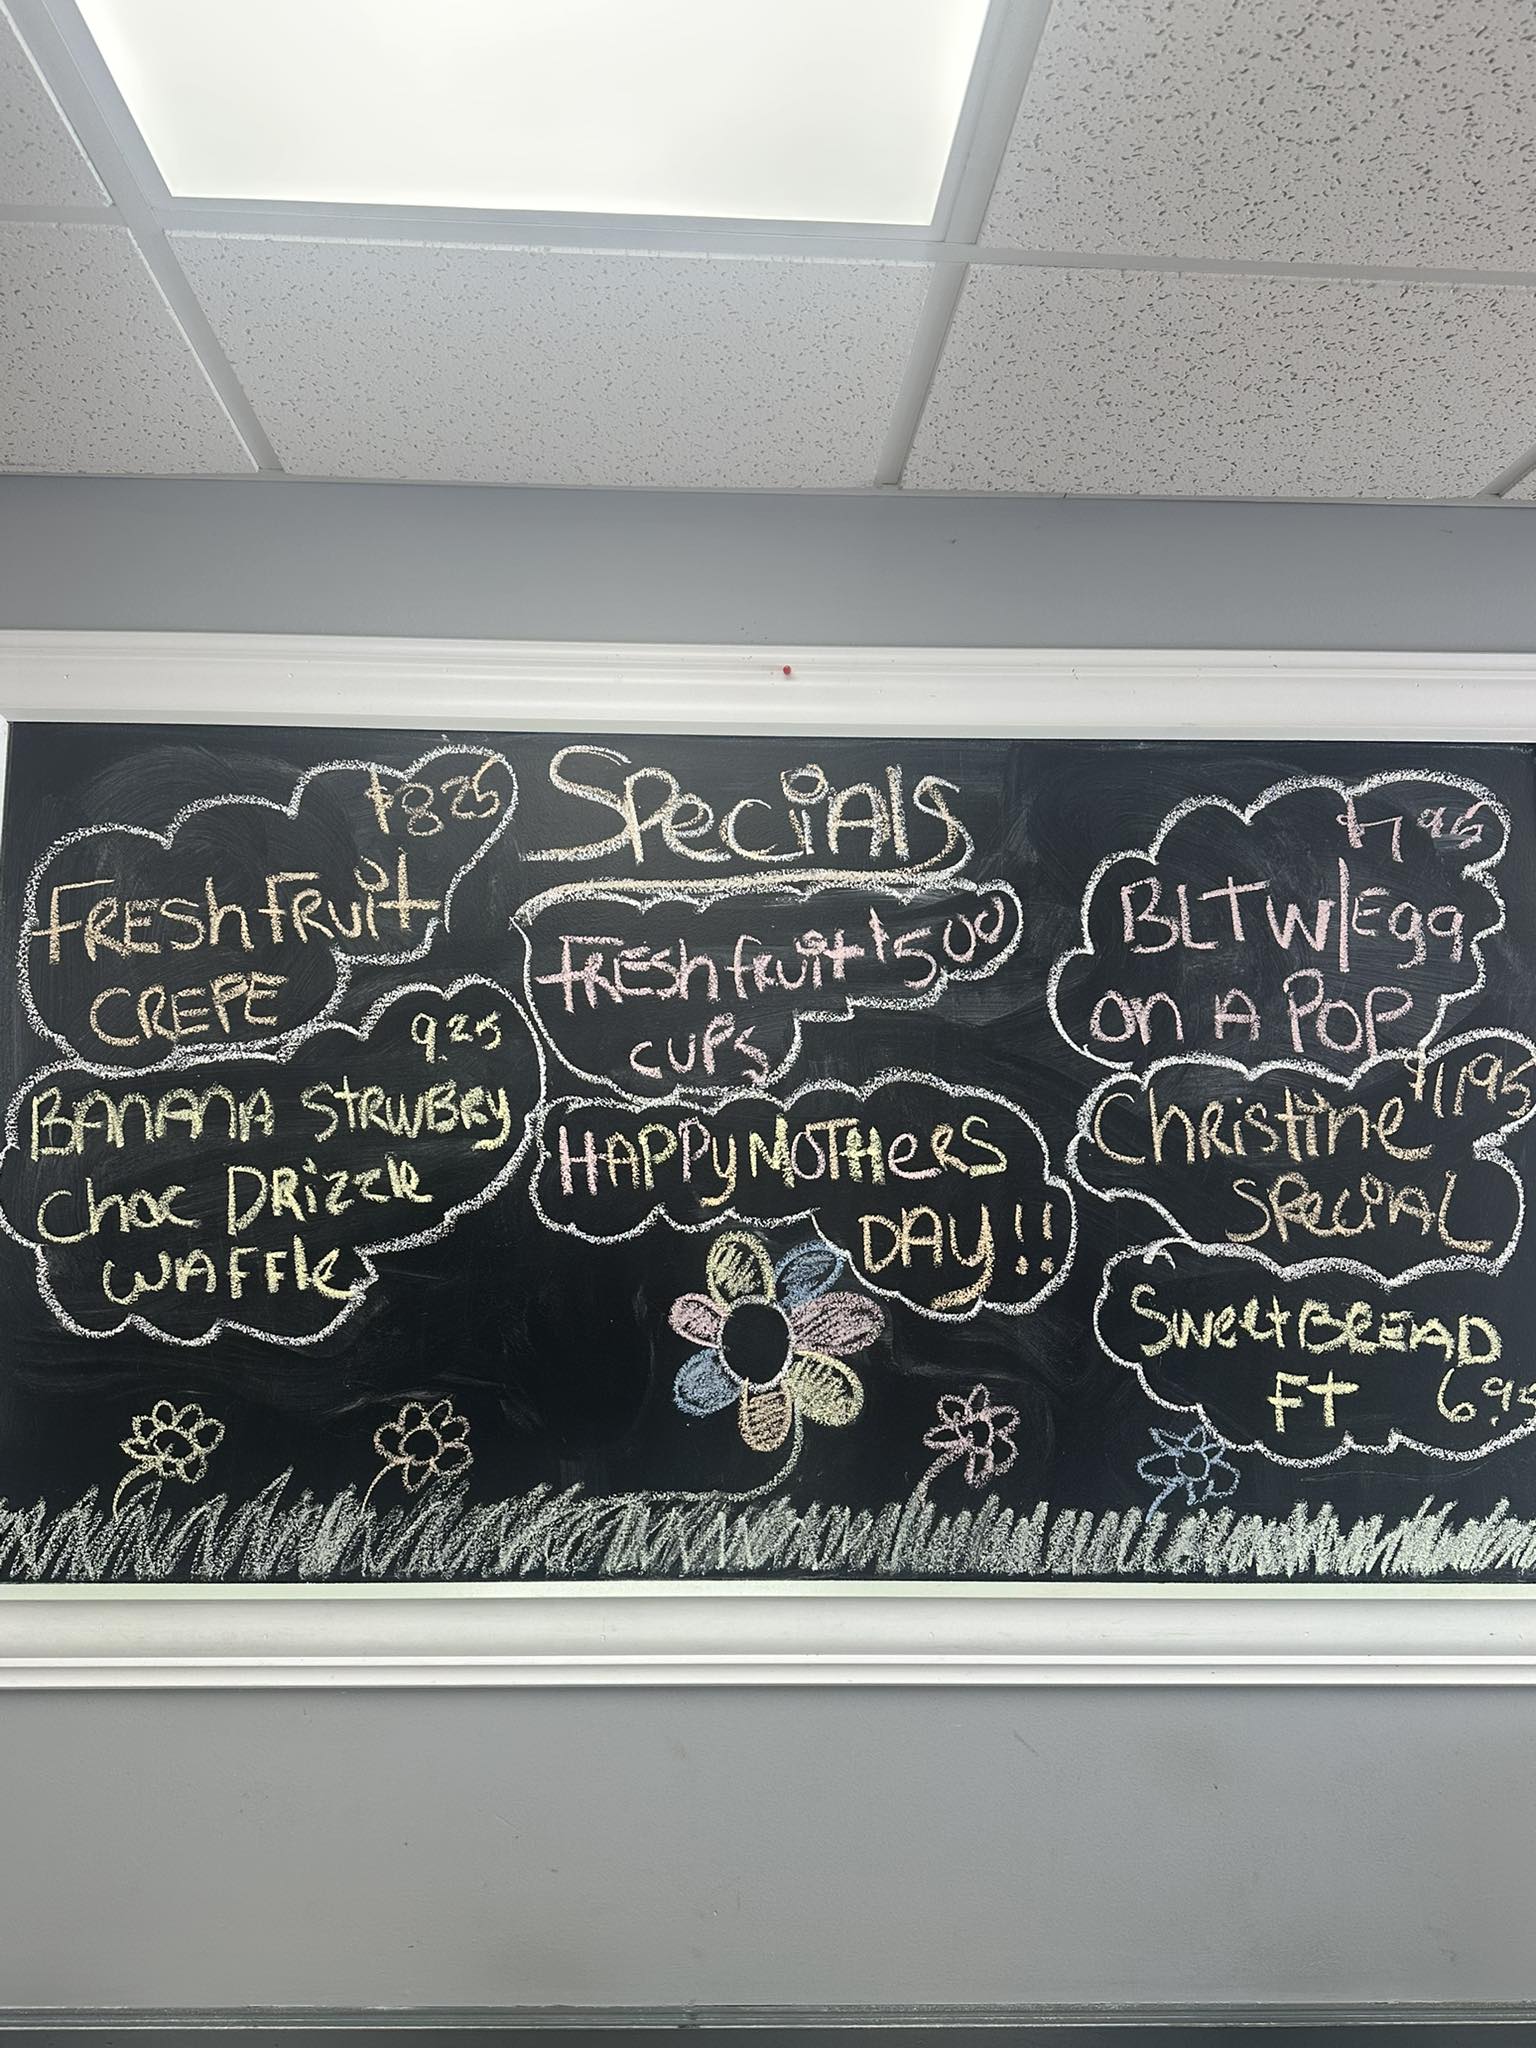 Specials
$8.25
FRESH FRUIT
CREPE
9.25
BANANA STRWBRY
Choc DRizzle
WAFFle
FRESH fRuit $5.00
CUPS
HAPPY MOTHeRS
DAY!!
$7.95
BLT W/Egg
on A POP
Christine $11.95
SPeciAL
Sweet BREAD
FT 6.95